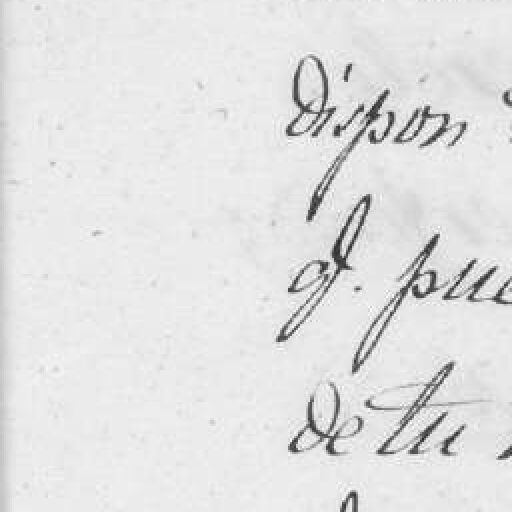 dispon
q. pue
de tu